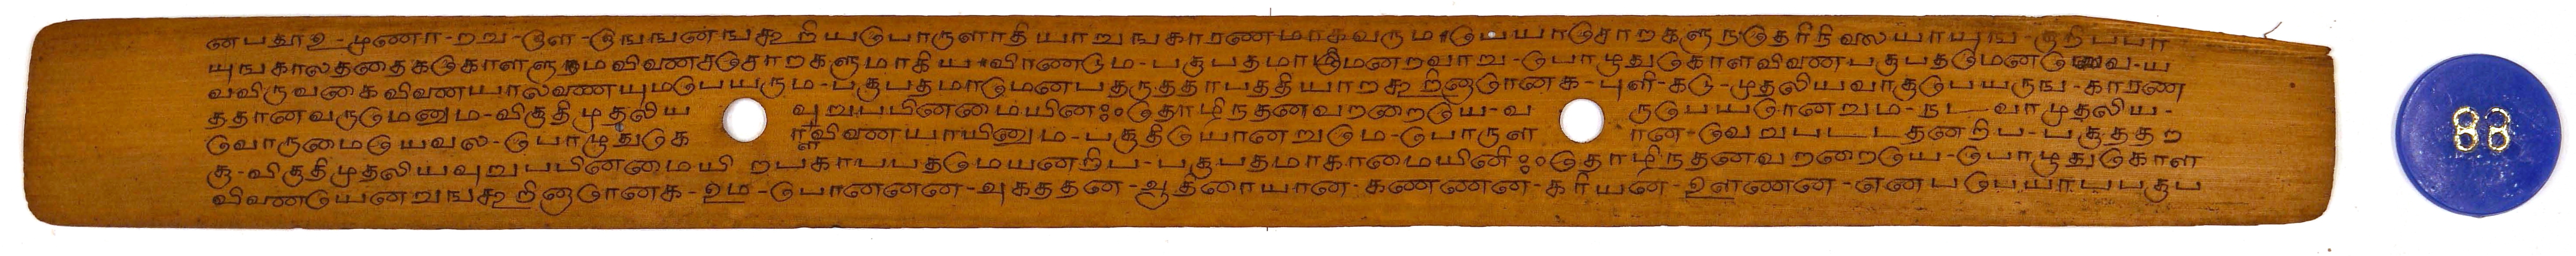 னபதூஉ-முணா-றறு-டூள-டூஙஙனஙகூறியபொருளாதியாறுஙகாரணமாகவருமபெயாசொறகளுநதெரிநிலையாயுங-குறிபபா
யுஙகாலததைகொளளுமவிவணசசொறகளுமாகியவிரணடும-பகுபதமாமெனறவாறு-பொழுதுகொளவிவணபகுபதமெனவெ-ய
வவிருவகைவிவணயாலவணயுமபெயரும-பகுபதமாமெனபதருததாபததியாறகூறினானாக-புளி-கடு-முதலியவாகுபெயருங-காரண
ததானவருமெனும-விகுதிமுதலிய வுறுபபினமையினஃதொழிநதனவறறையெ-வ ருபெயரானறும-நடவாமுதலிய-
வொருமையெவல-பொழுதுக ளவிவணயாயினும-பகுதியொனறுமெ-பொருள ான-வெறுபடடதனறிப-பகுததற
கு-விகுதிமுதலியவுறுபபினமையி றபகாபபதமெயனறிப-பகுபதமாகாமையினிஃதொழிநதனவறறையெ-பொழுதுகொள
விவணயெனறுஙகூறினானாக-உம-பொனனன-அகததன-ஆதிரையான-கணணன-கரியன-ஊணன-எனபபெயாபபகுப